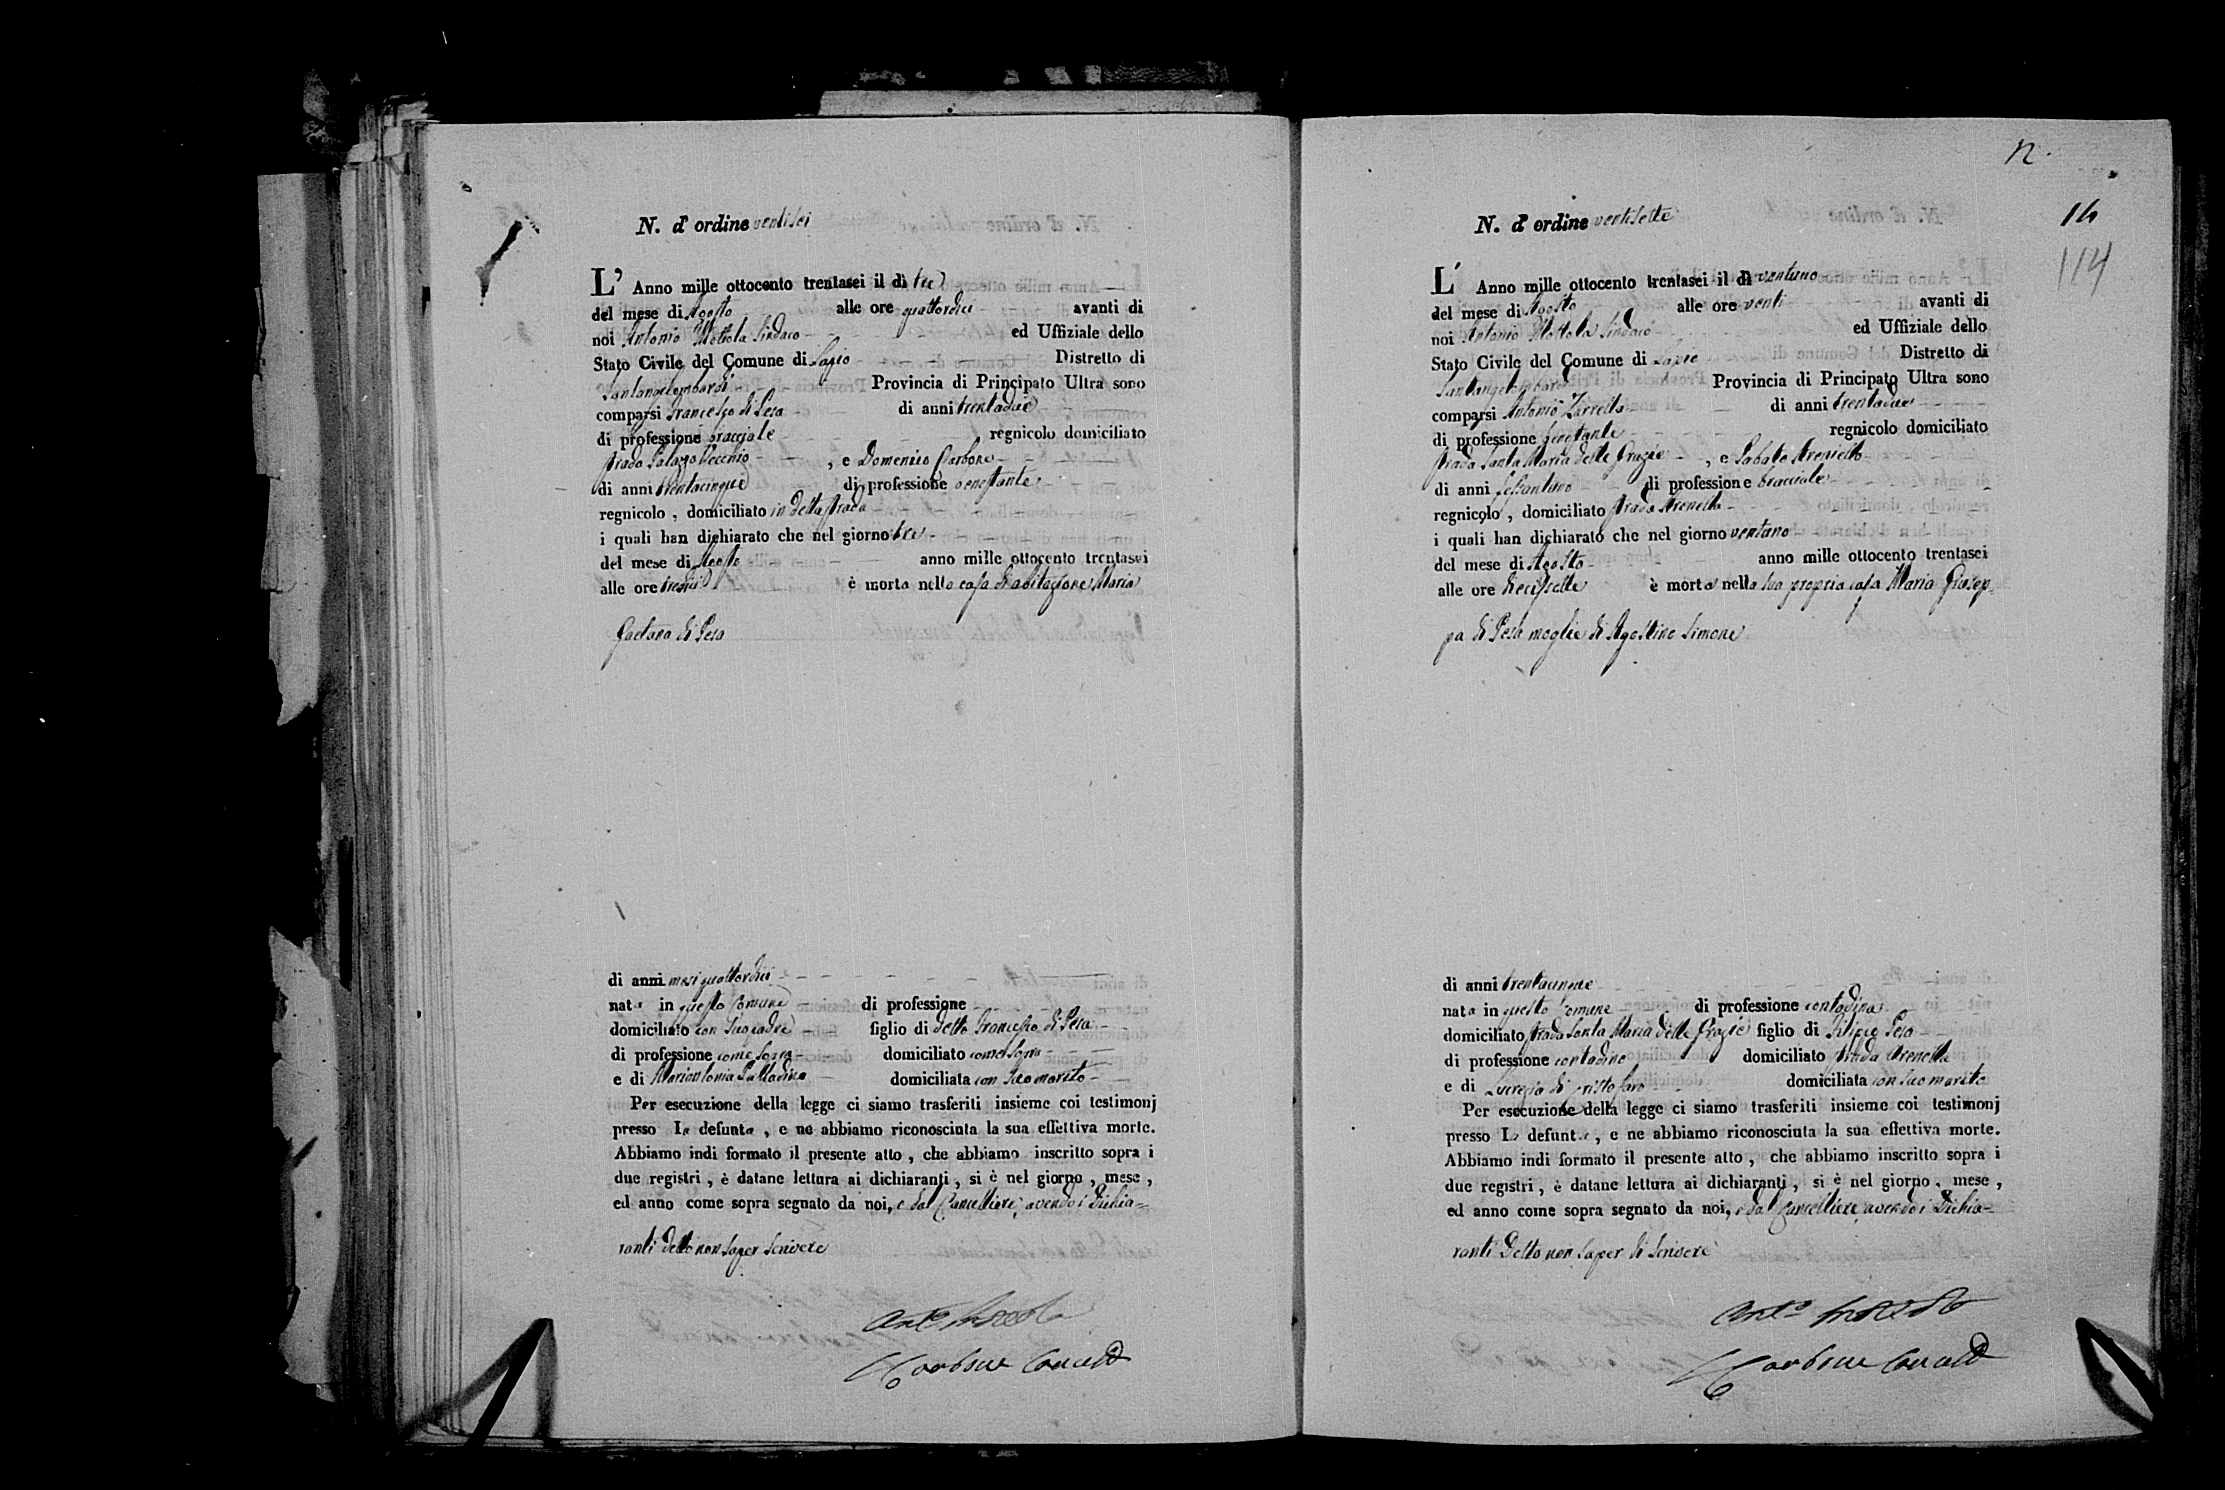 N. d' ordine ventisei
L' Anno mille ottocento trentasei il dì tre
del mese di Agosto alle ore quattordici avanti di
noi Antonio Mottola Sindaco ed Uffiziale dello
Stato Civile del Comune di Lapio Distretto di
Santangelombardi Provincia di Principato Ultra sono
comparsi Francesco di Pesa di anni trentadue
di professione bracciale regnicolo domiciliato
strada Palazzo Vecchio , e Domenico Carbone
di anni trentacinque di professione benestante
regnicolo , domiciliato in detta strada
i quali han dichiarato che nel giorno tre
del mese di Agosto anno mille ottocento trentasei
alle ore tredici è morta nella casa di abitazione Maria
Gaetana di Pesa
di anni mesi quattordici
nata in questo Comune di professione
domiciliato con suo padre figlio di detto Francesco di Pesa
di professione come sopra domiciliato come sopra
e di Mariantonia Palladino domiciliata con suo marito
Per esecuzione della legge ci siamo trasferiti insieme coi testimonj
presso la defunta , e ne abbiamo riconosciuta la sua effettiva morte.
Abbiamo indi formato il presente atto , che abbiamo inscritto sopra i
due registri , è datane lettura ai dichiaranti , si è nel giorno , mese ,
ed anno come sopra segnato da noi, e dal Cancelliere, avendo i Dichia=
ranti detto non saper scrivere
Ant.o Mottola
Carbone Canc.e
12.
14
114
N. d' ordine ventisette
L' Anno mille ottocento trentasei il dì ventuno
del mese di Agosto alle ore venti avanti di
noi Antonio Mottola Sindaco ed Uffiziale dello
Stato Civile del Comune di Lapio Distretto di
Santangelombardi Provincia di Principato Ultra sono
comparsi Antonio Zarrella di anni trentadue
di professione benestante regnicolo domiciliato
strada Santa Maria delle Grazie , e Sabato Areniello
di anni sessantuno di professione bracciale
regnicolo , domiciliato strada Arenella
i quali han dichiarato che nel giorno ventuno
del mese di Agosto anno mille ottocento trentasei
alle ore diecisette è morta nella sua propria casa Maria Giusep=
pa di Pesa moglie di Agostino Simone
di anni trentacinque
nata in questo Comune di professione contadina
domiciliato strada Santa Maria delle Grazie figlio di Pesa
di professione contadino domiciliato strada Arenella
e di Lucrezia di Cristofaro domiciliata con suo marito
Per esecuzione della legge ci siamo trasferiti insieme coi testimonj
presso la defunta , e ne abbiamo riconosciuta la sua effettiva morte.
Abbiamo indi formato il presente atto , che abbiamo inscritto sopra i
due registri , è datane lettura ai dichiaranti , si è nel giorno , mese ,
ed anno come sopra segnato da noi, e dal Cancelliere avendo i Dichia=
ranti Detto non saper di scrivere
Ant.o Mottola
Carbone Canc.e